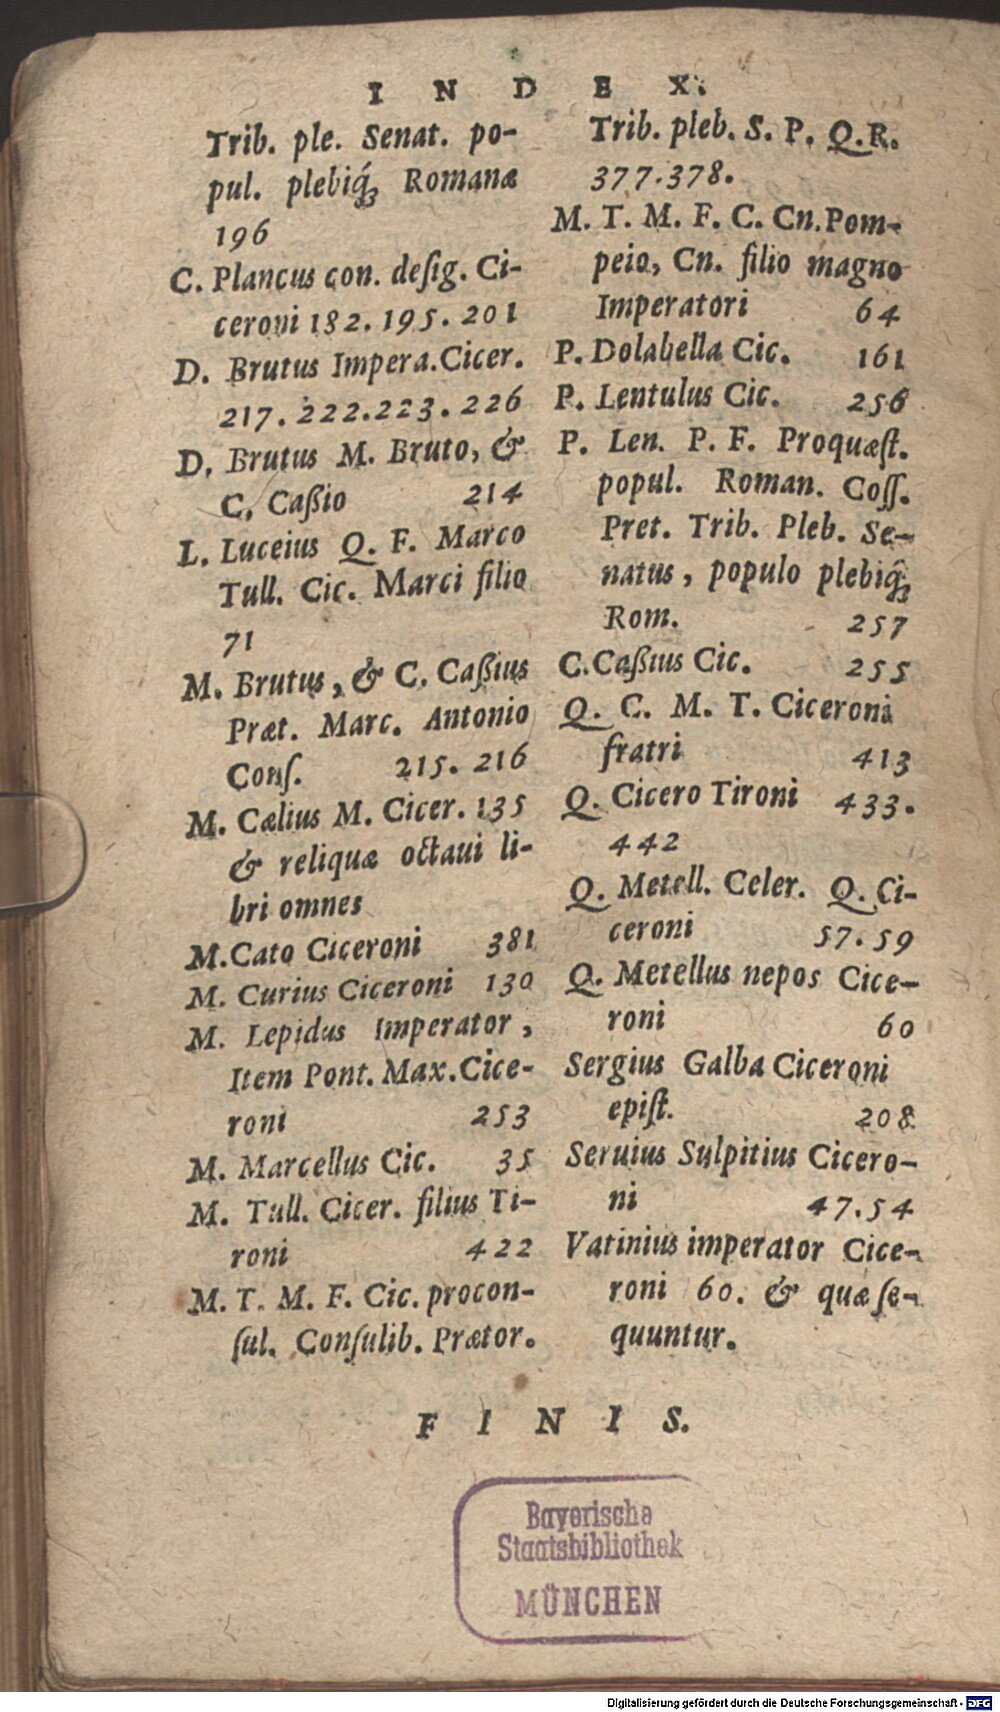 INDEX.
Trib. ple. Senat. po-
pul. plebiq́ꝫ Romanæ
196
C. Plancus con. deſig. Ci-
ceroni 182. 195. 201
D. Brutus Impera. Cicer.
217. 222. 223. 226
D. Brutus M. Bruto, &
C, Caßio 214
L. Luceius Q. F. Marco
Tull. Cic. Marci filio
71
M. Brutus, & C. Caßius
Præt. Marc. Antonio
Conſ. 215. 216
M. Cælius M. Cicer. 135
& reliquæ octaui li-
bri omnes
M. Cato Ciceroni 381
M. Curius Ciceroni 130
M. Lepidus Imperator,
Item Pont. Max. Cice-
roni 253
M. Marcellus Cic. 35
M. Tull. Cicer. filius Ti-
roni 422
M. T. M. F. Cic. procon-
ſul. Conſulib. Prætor.
Trib. pleb. S. P. Q. R.
377. 378.
M. T. M. F. C. Cn. Pom-
peio, Cn. filio magno
Imperatori 64
P. Dolabella Cic. 161
P. Lentulus Cic. 256
P. Len. P. F. Proquæſt.
popul. Roman. Coſſ.
Pret. Trib. Pleb. Se-
natus, populo plebiq̂ꝫ
Rom. 257
C. Caßius Cic. 255
Q. C. M. T. Ciceroni
fratri 413
Q. Cicero Tironi 433.
442
Q. Metell. Celer. Q. Ci-
ceroni 57. 59
Q. Metellus nepos Cice-
roni 60
Sergius Galba Ciceroni
epiſt. 208
Seruius Sulpitius Cicero-
ni 47. 54
Vatinius imperator Cice-
roni 60. & quæ ſe-
quuntur.
FINIS.
Bayerische
Staatsbibliothek
MÜNCHEN
Digitalisierung gefördert durch die Deutsche Forschungsgemeinschaft - DFG